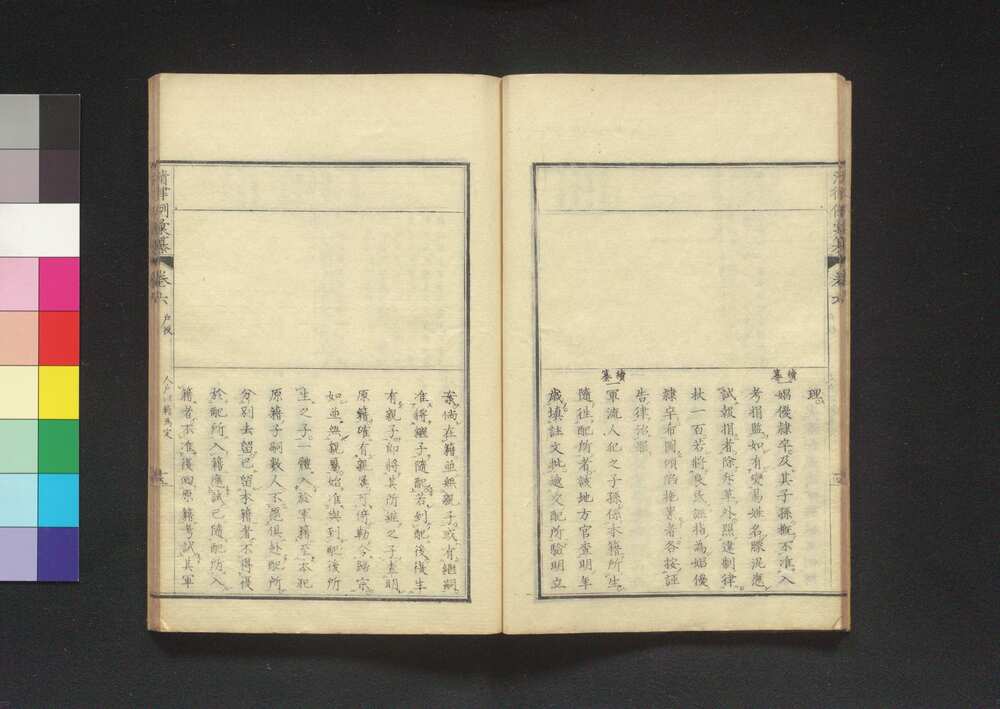 理
續纂
娼優隸卒及其子孫概不准入
考捐監如有變易姓名朦混應
試報捐者除斥革外照違制律
杖一百若將良民誣指為娼優
隸卒布圖傾陷拖害者各按誣
告律治罪
續纂
一軍流人犯之子孫係本籍所生
隨往配所者該地方官查明年
歲填註文批遞交配所驗明立
案倘在籍並無親子或有繼嗣
准將繼子隨配若到配後復生
有親子即將其所繼之子查明
原籍確有親屬可倚勒令歸宗
如並無親屬始准與到配後所
生之子一體入於軍籍至本犯
原籍子嗣數人不愿俱赴配所
分別去留已留本籍者不得復
於配所入籍應試已隨配所入
籍者不准復回原籍考試其軍
清律例彙纂
卷六
戶役
人戶以籍為定